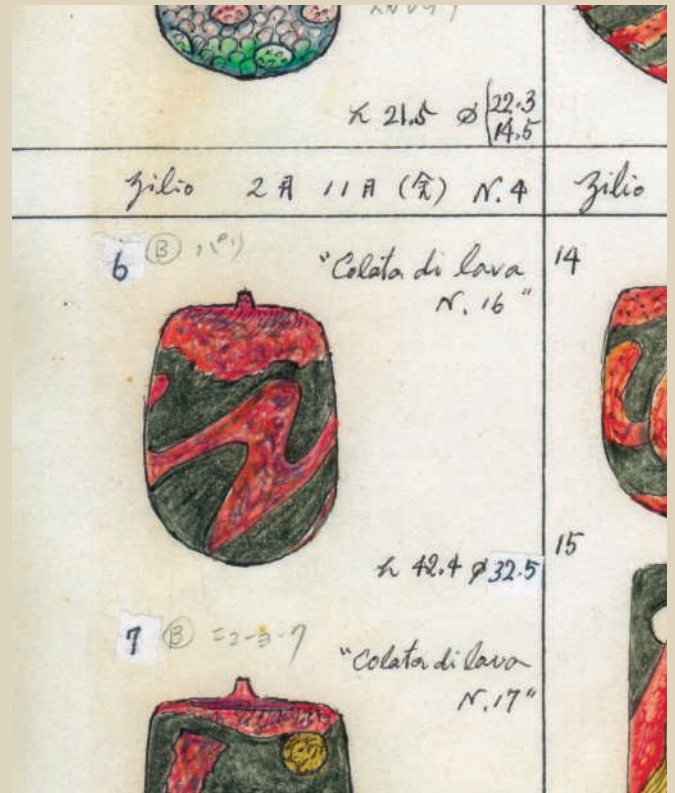 h 21.5 ø 22.3
14.5
Zilio 2月 11日 (金) N.4
Zilio
6 Ⓑ パリ
"Colata di lava
N. 16"
14
h 42.4 ø 32.5
15
7 Ⓑ ニューヨーク
"Colata di lava
N.17"